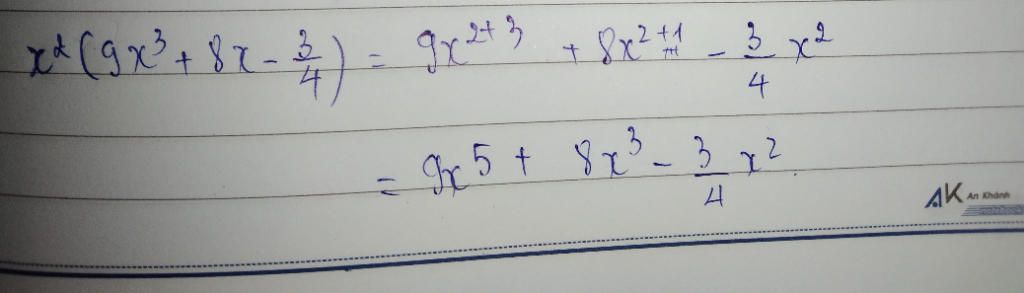 x²(9x³ + 8x - 3/4) = 9x²⁺³ + 8x²⁺¹ - 3/4 x²
= 9x⁵ + 8x³ - 3/4 x²
AK An Khánh